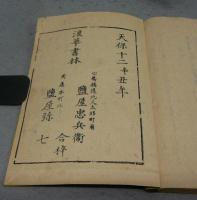 天保十二辛丑年
浪華書林
心斎橋通北久太郎町南
鹽屋忠兵衛
鹽屋弥七
合梓